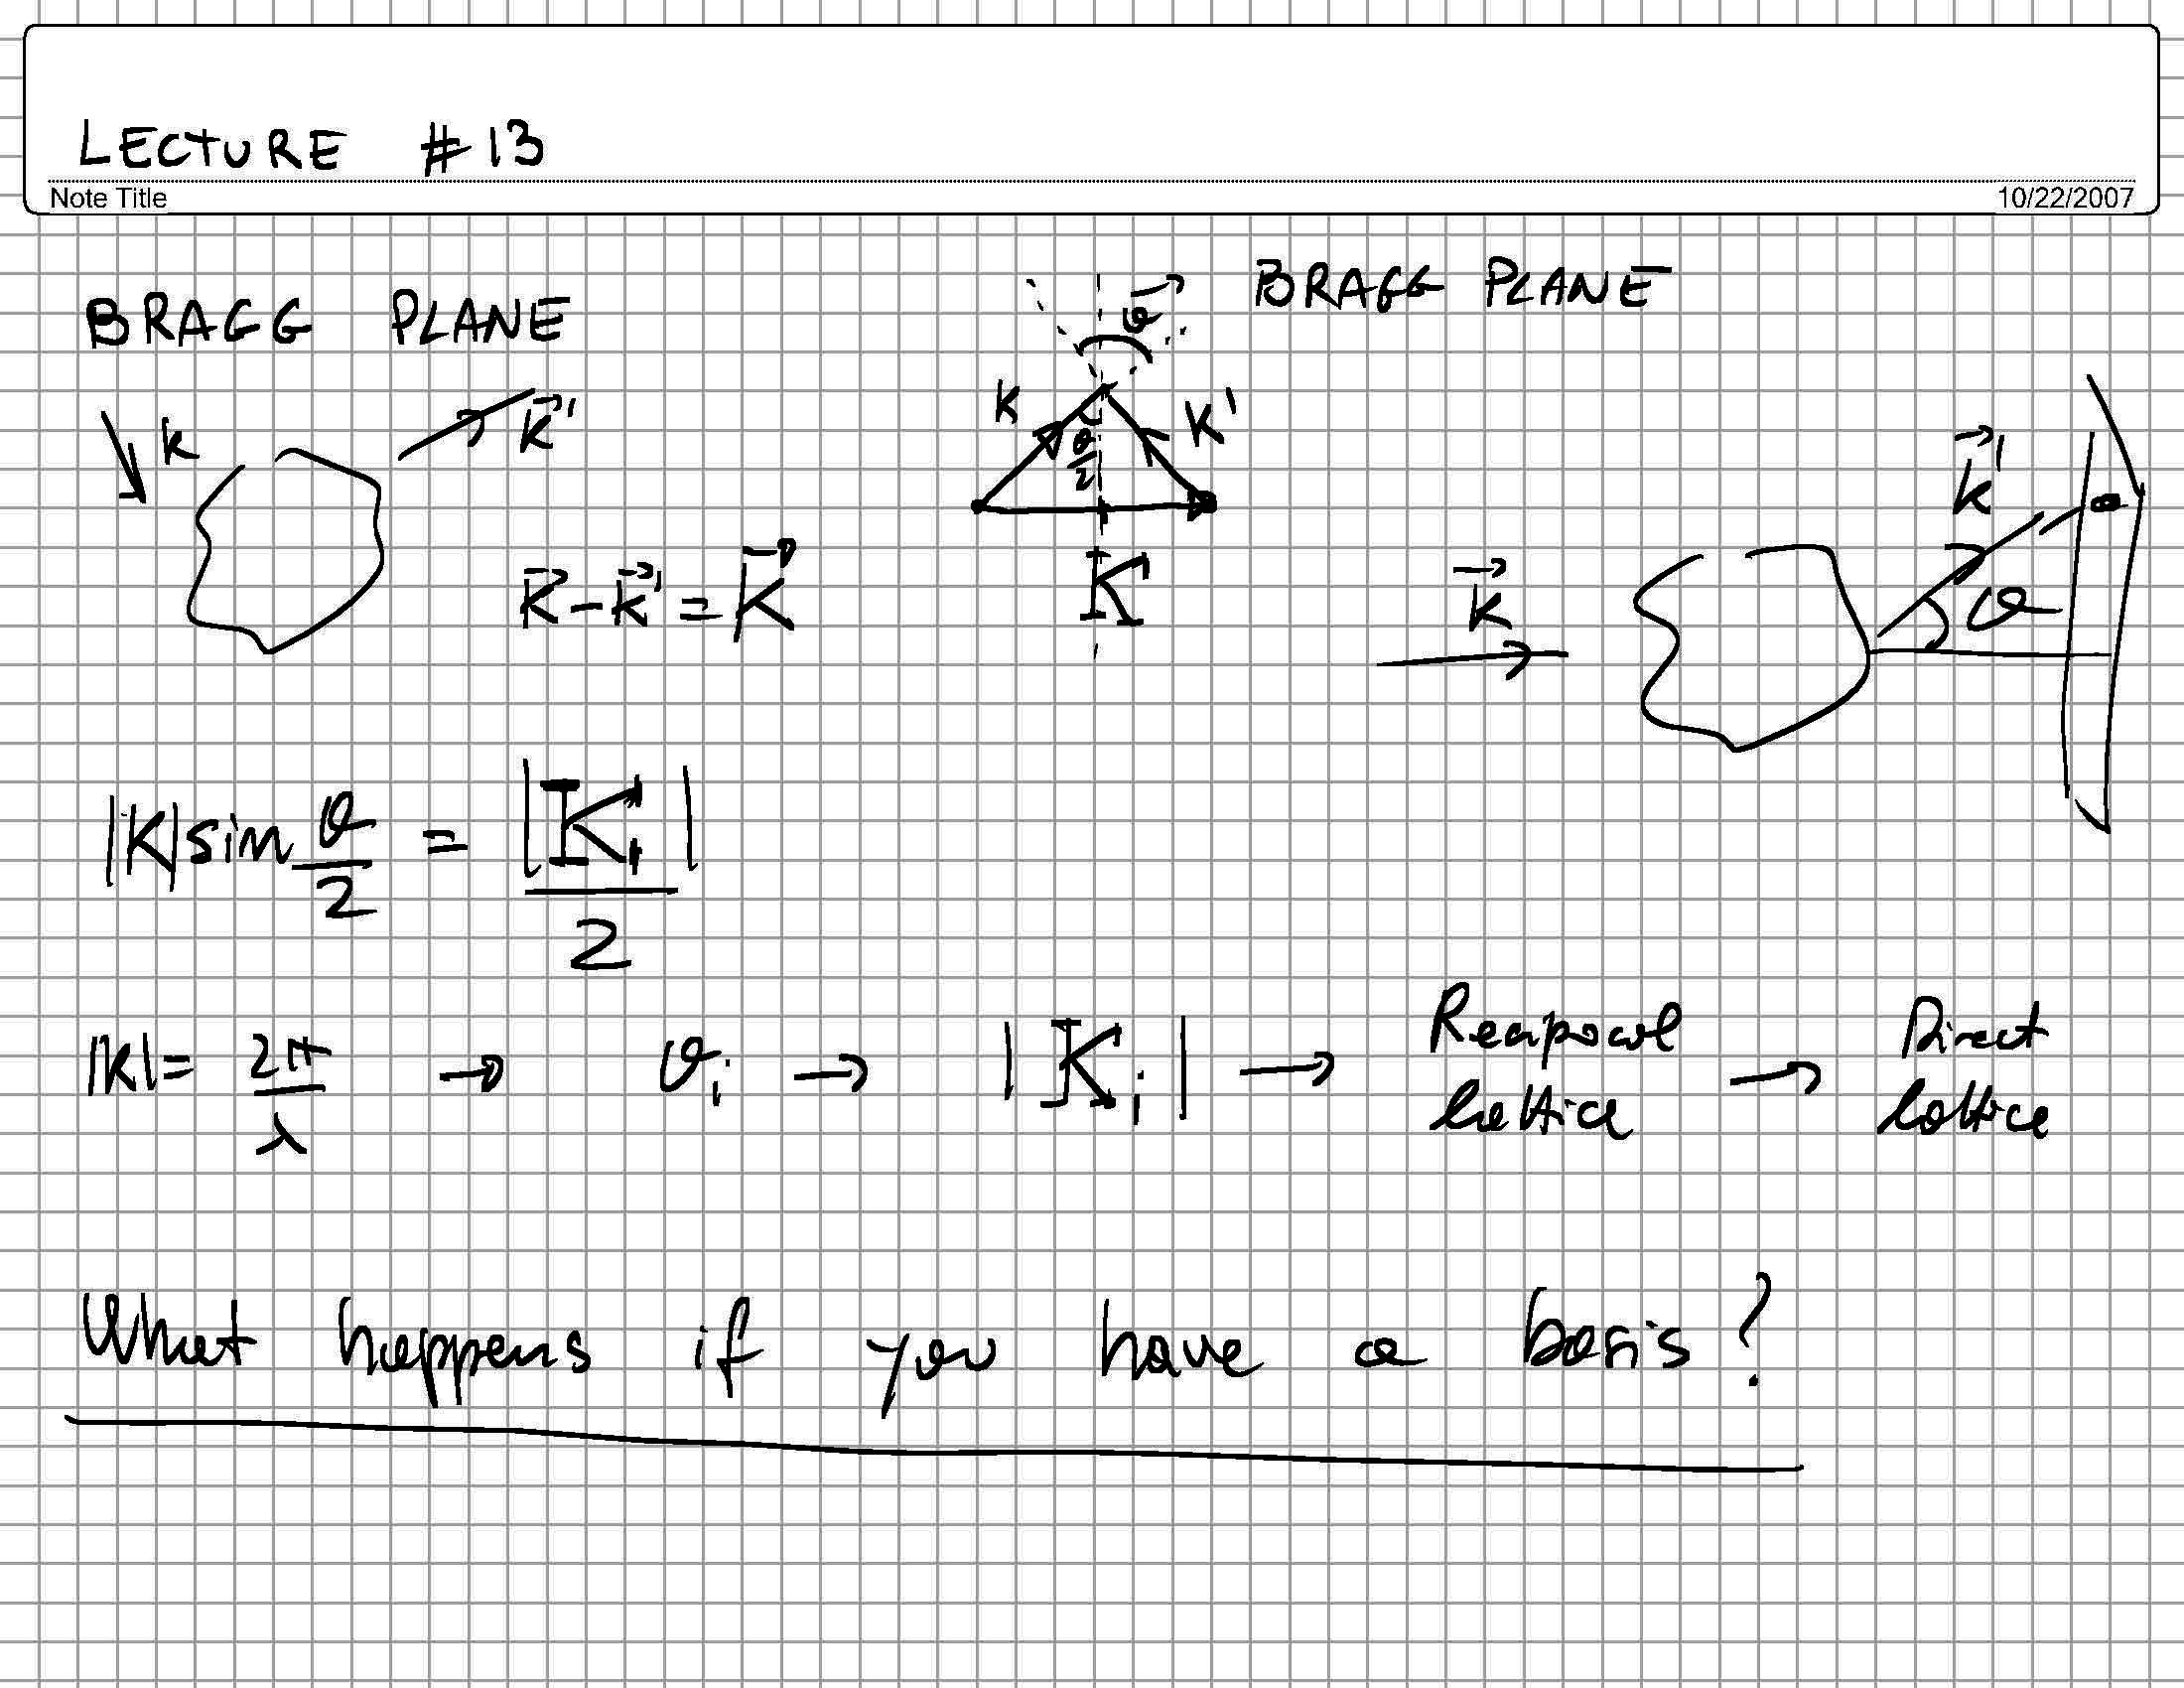 LECTURE #13
Note Title 10/22/2007
BRAGG PLANE
BRAGG PLANE
θ
k
k⃗'
k
k'
θ/2
K
k⃗ - k⃗' = K⃗
k⃗
k⃗'
θ
|k| sin θ/2 = |K⃗₁|/2
|k| = 2π/λ → θᵢ → |Kᵢ| → Reciprocal lattice → Direct lattice
What happens if you have a basis?